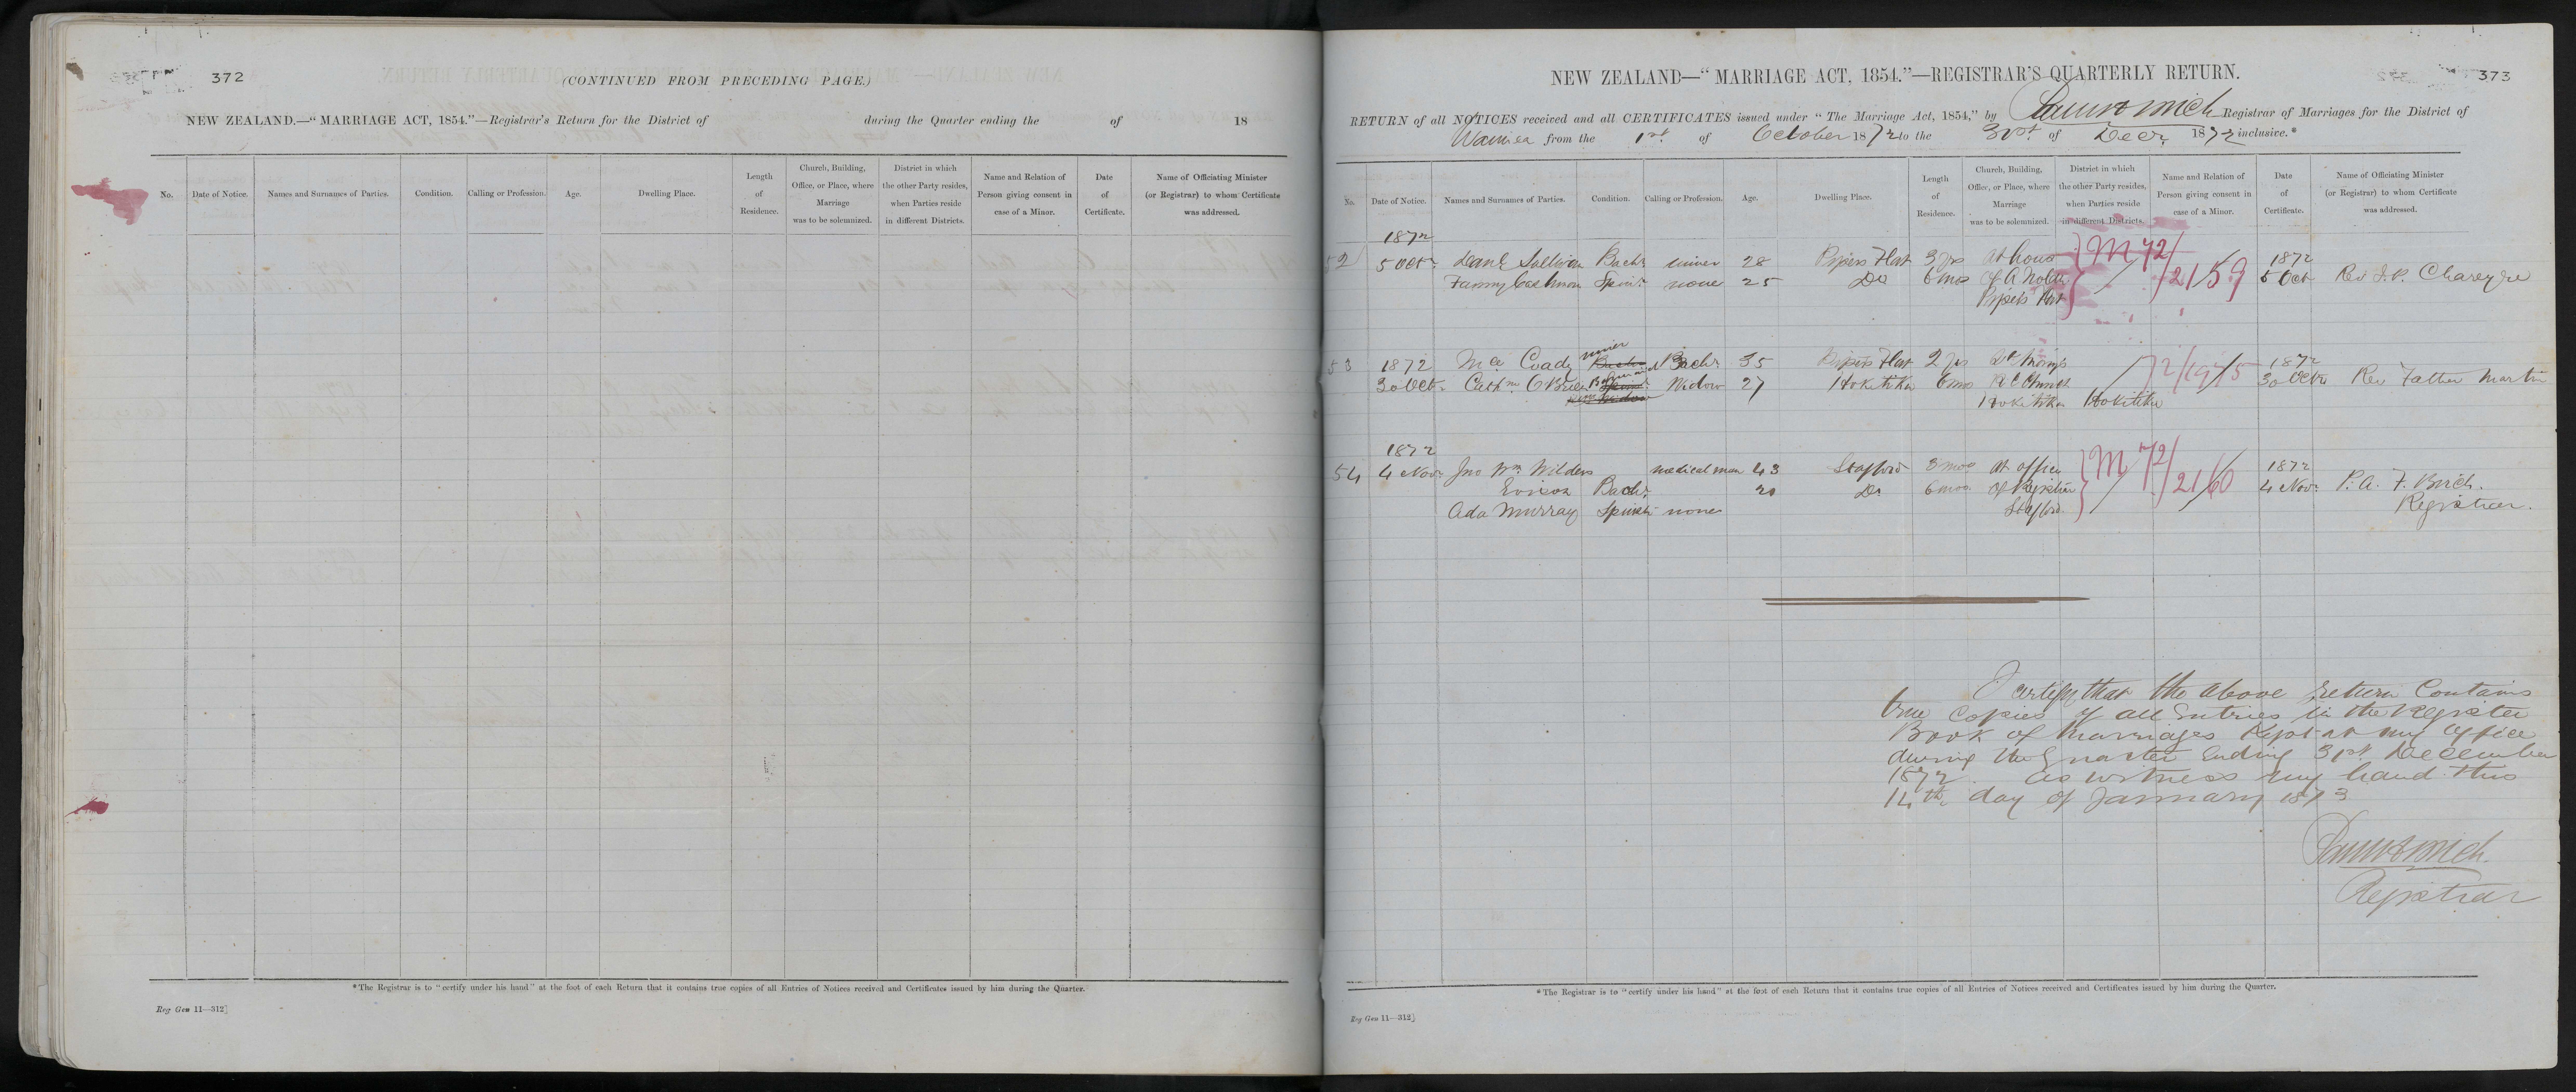 372
(CONTINUED FROM PRECEDING PAGE.)
NEW ZEALAND.—"MARRIAGE ACT, 1854."—Registrar's Return for the District of during the Quarter ending the of 18
No.
Date of Notice.
Names and Surnames of Parties.
Condition.
Calling or Profession.
Age.
Dwelling Place.
Length
of
Residence.
Church, Building,
Office, or Place, where
Marriage
was to be solemnized.
District in which
the other Party resides,
when Parties reside
in different Districts.
Name and Relation of
Person giving consent in
case of a Minor.
Date
of
Certificate.
Name of Officiating Minister
(or Registrar) to whom Certificate
was addressed.
*The Registrar is to "certify under his hand" at the foot of each Return that it contains true copies of all Entries of Notices received and Certificates issued by him during the Quarter.
Reg Gen 11—312]
373
NEW ZEALAND—"MARRIAGE ACT, 1854."—REGISTRAR'S QUARTERLY RETURN.
RETURN of all NOTICES received and all CERTIFICATES issued under "The Marriage Act, 1854," by Registrar of Marriages for the District of
Waimea from the 1st of October 1872 to the 31st of Decr 1872 inclusive.*
No.
Date of Notice.
Names and Surnames of Parties.
Condition.
Calling or Profession.
Age.
Dwelling Place.
Length
of
Residence.
Church, Building,
Office, or Place, where
Marriage
was to be solemnized.
District in which
the other Party resides,
when Parties reside
in different Districts.
Name and Relation of
Person giving consent in
case of a Minor.
Date
of
Certificate.
Name of Officiating Minister
(or Registrar) to whom Certificate
was addressed.
1872
52 5 Octr Danl Sullivan Bachr miner 28 Pipers Flat 3 yrs At house M 72/2159 1872
Fanny Cashman Spinr none 25 Do 6 mos of A Nolan 5 Oct Rev J. P. Chareyre
Pipers Flat
miner
53 1872 Mce Coady Bachr 35 Pipers Flat 2 yrs St Marys 72/1915 1872
30 Octr Cathne O'Brien Widow 27 Hokitika 6 mos R C Church 30 Octr Rev Father Martin
Hokitika Hokitika
1872
54 4 Novr Jno Wm Wilders medical man 43 Stafford 3 mos At office M 72/2160 1872
Bachr 20 Do 6 mos of Registrar 4 Novr P. A. F. Birch.
Ada Murray Spinstr none Stafford Registrar.
I certify that the above return Contains
true Copies of all Entries in the Register
Book of Marriages Kept at my Office
during the Quarter Ending 31st December
1872. As witness my hand this
14th day of January 1873
Registrar
*The Registrar is to "certify under his hand" at the foot of each Return that it contains true copies of all Entries of Notices received and Certificates issued by him during the Quarter.
Reg Gen 11—312]